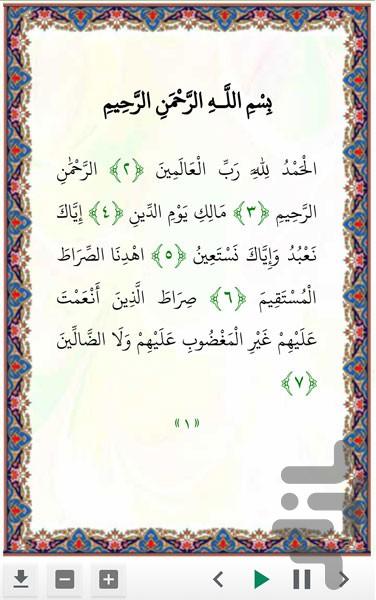 بِسْمِ اللَّـهِ الرَّحْمَنِ الرَّحِيمِ
الْحَمْدُ لِلَّهِ رَبِّ الْعَالَمِينَ ﴿٢﴾ الرَّحْمَٰنِ
الرَّحِيمِ ﴿٣﴾ مَالِكِ يَوْمِ الدِّينِ ﴿٤﴾ إِيَّاكَ
نَعْبُدُ وَإِيَّاكَ نَسْتَعِينُ ﴿٥﴾ اهْدِنَا الصِّرَاطَ
الْمُسْتَقِيمَ ﴿٦﴾ صِرَاطَ الَّذِينَ أَنْعَمْتَ
عَلَيْهِمْ غَيْرِ الْمَغْضُوبِ عَلَيْهِمْ وَلَا الضَّالِّينَ
﴿٧﴾
«١»
بازار